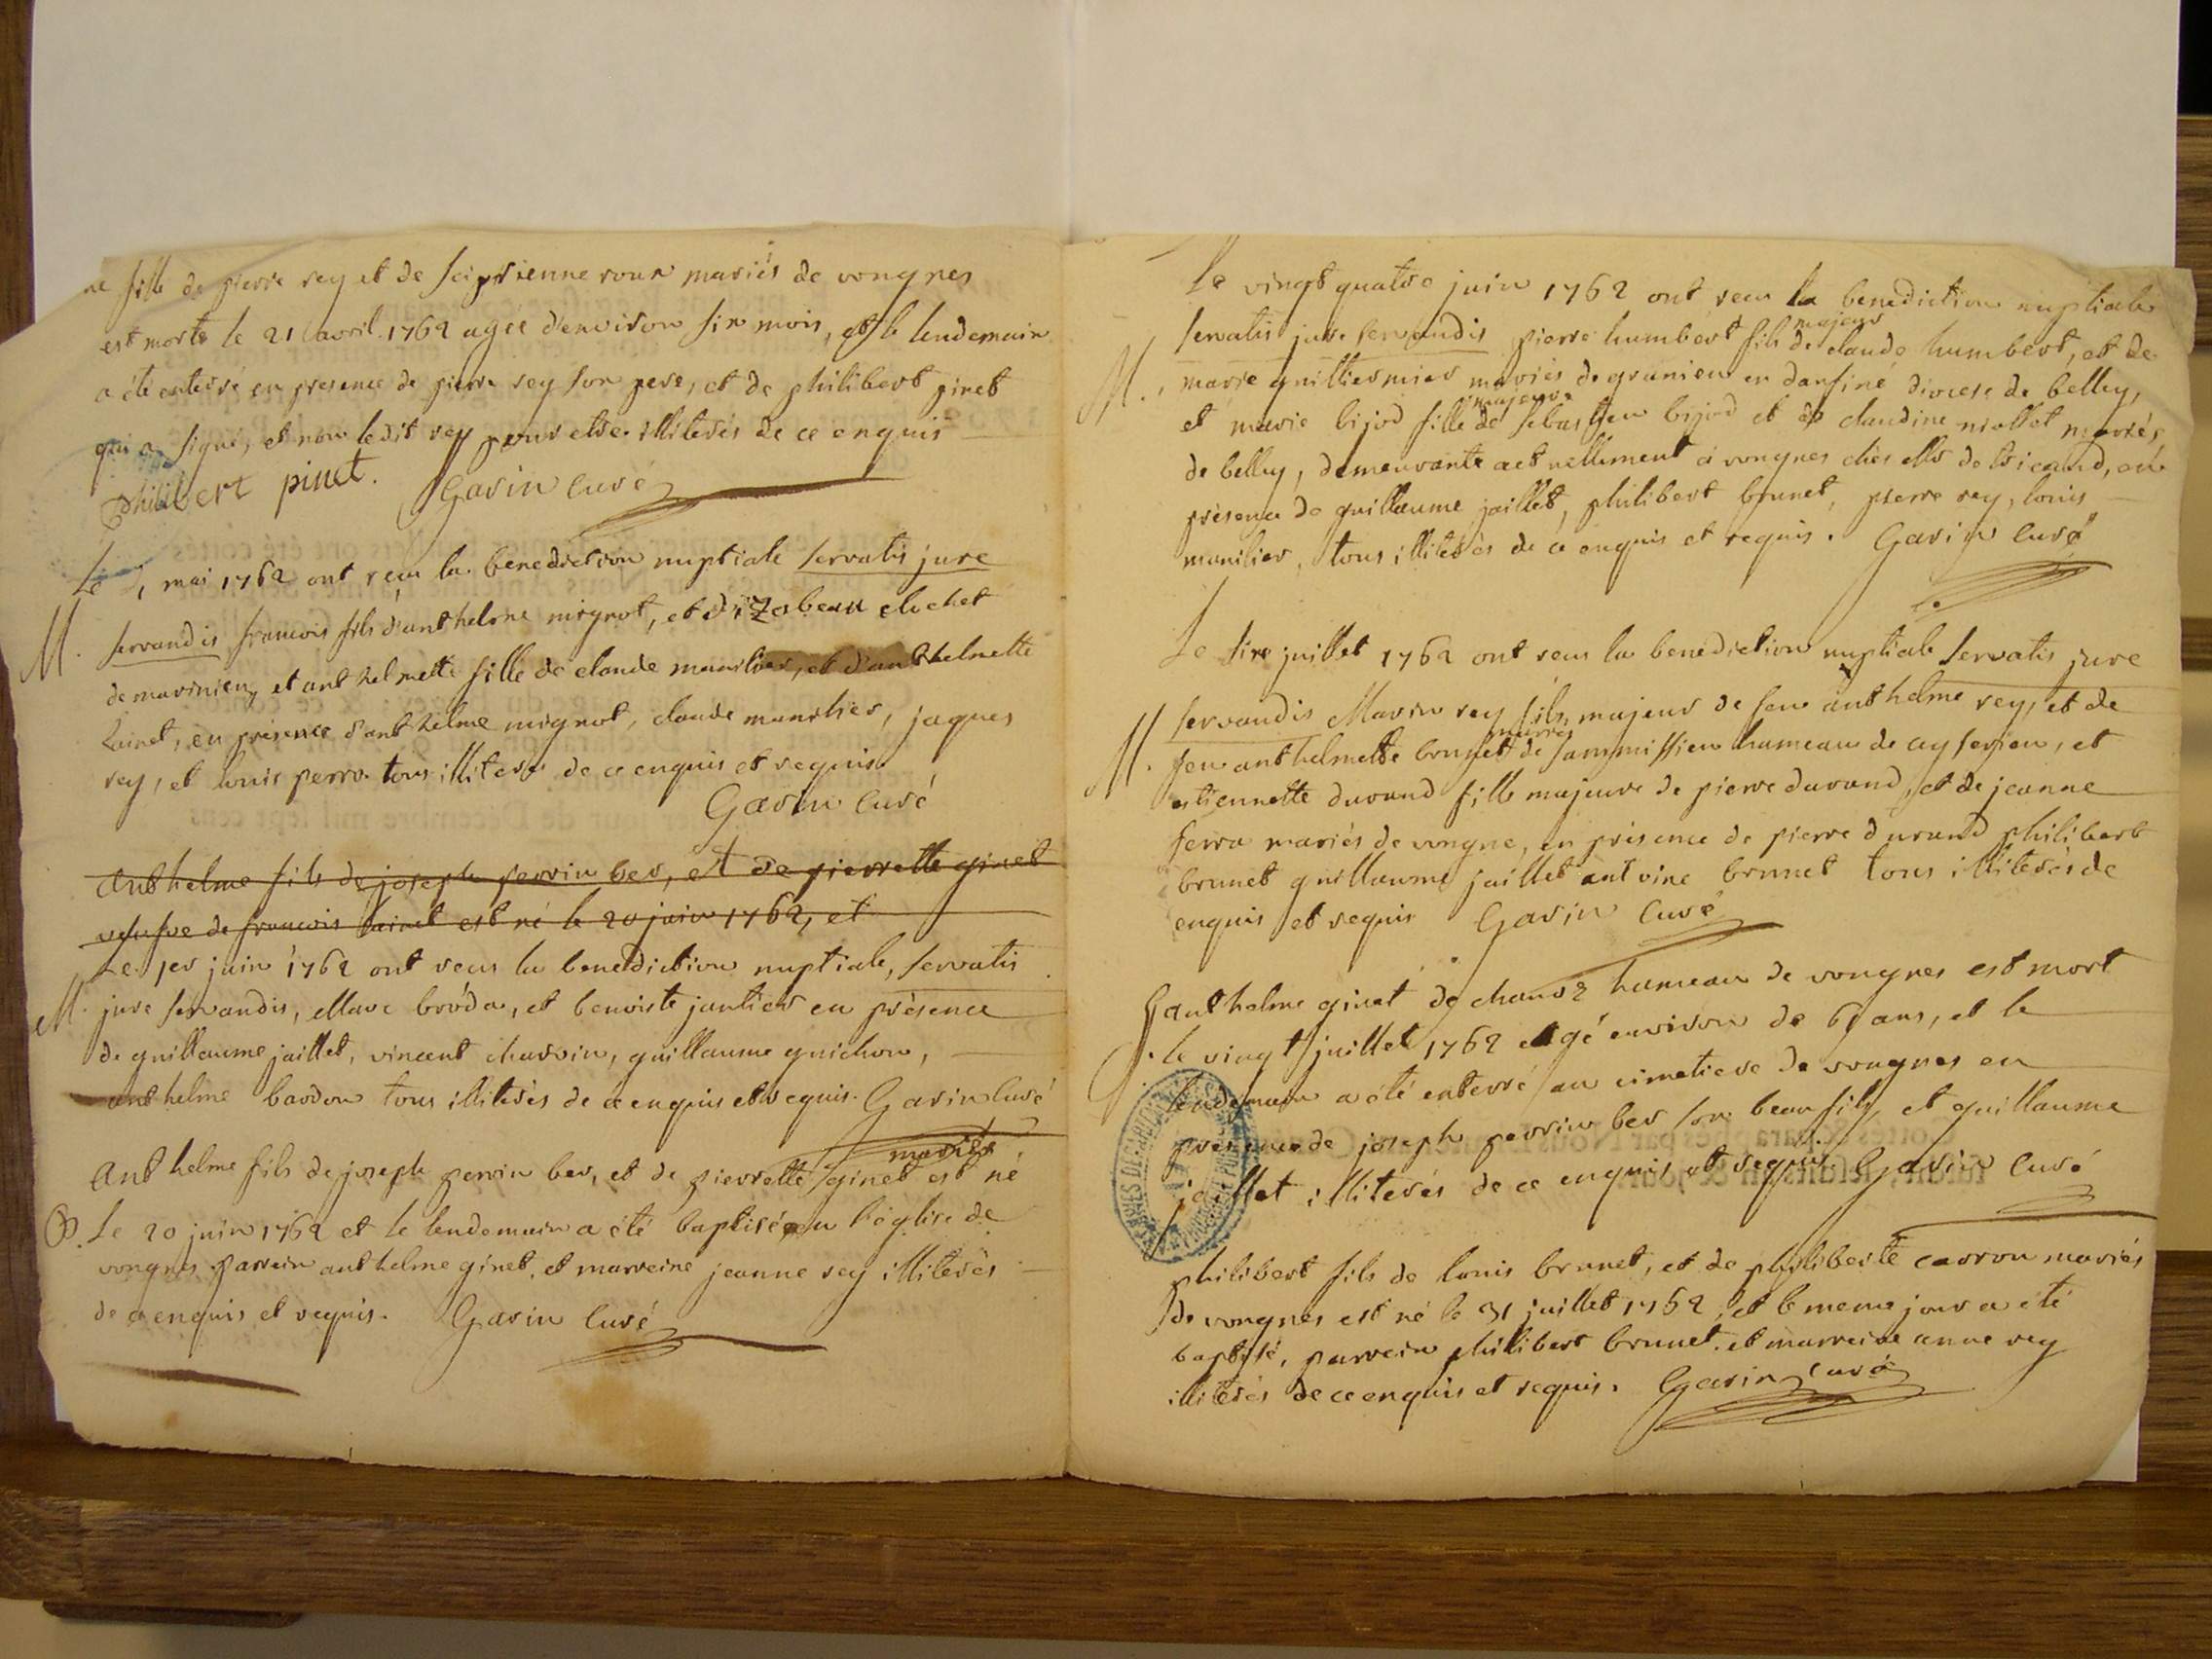 ne fille de pierre rey et de scipsienne roux mariés de vongnes
est morte le 21 avril 1762 agée d'environ six mois, et le lendemain
a été enterré en presence de pierre rey son pere, et de philibert pinet
qui a signé, et non ledit rey pour etre illiterés de ce enquis
philibert pinet. Gavin curé
Le 1 mai 1762 ont reçu la benediction nuptiale servatis jure
M. servandis francois fils d'anthelme mignot, et d'izabeau clochet
de mavinieu, et anthelmette fille de claude munilier, et d'anthelmette
Lainet, en présence d'anthelme mignot, claude munilier, jaques
rey, et louis perra tous illiterés de ce enquis et requis
Gavin curé
Anthelme fils de joseph perrin ber, et de pierrette ginet
vefve de francois Lainet est né le 20 juin 1762, et
Le 1er juin 1762 ont receu la benediction nuptiale, servatis
M. jure servandis, Marc bróda, et benoiste jantier en présence
de guillaume jaillet, vincent charvin, guillaume guichon,
anthelme bardon tous illiterés de ce enquis et requis. Gavin curé
mariés
Anthelme fils de joseph perrin ber, et de pierrette ginet est né
B. Le 20 juin 1762 et le lendemain a été baptisé en l'église de
vongnes parrein anthelme ginet, et marreine jeanne rey illiterés
de ce enquis et requis. Gavin curé
Le vingt quatre juin 1762 ont receu la benediction nuptiale
majeur
servatis jure servandis pierre humbert fils de claude humbert, et de
M. marie guilliermier mariés de grunieu en daufiné diocese de belley,
majeure
et marie bijod fille de sebastien bijod et de claudine niollet mariés
de belley, demeurante actuellement à vongnes chés de en
présence de guillaume jaillet, philibert brunet, pierre rey, louis
munilier, tous illiterés de ce enquis et requis. Gavin curé
Le six juillet 1762 ont receu la benediction nuptiale servatis jure
servandis Marin rey fils majeur de feu anthelme rey, et de
M. feu anthelmette brunet de sammissieu hameau de ceyserieu, et
estiennette durand fille majeure de pierre durand, et de jeanne
ferra mariés de vongne, en présence de pierre durand philibert
brunet guillaume jaillet antoine brunet tous illiterés de
enquis et requis Gavin curé
anthelme ginet de chavoz hameau de vongnes est mort
le vingt juillet 1762 agé environ de ans, et le
lendemain a été enterré au cimetiere de vongnes en
présence de joseph perrin ber son beau fils, et guillaume
jaillet illiterés de ce enquis et requis. Gavin curé
philibert fils de louis brunet, et de philiberte carron mariés
de vongnes est né le 31 juillet 1762, et le meme jour a été
baptisé, parrein philibert brunet, et marreine anne rey
illiterés de ce enquis et requis. Gavin curé